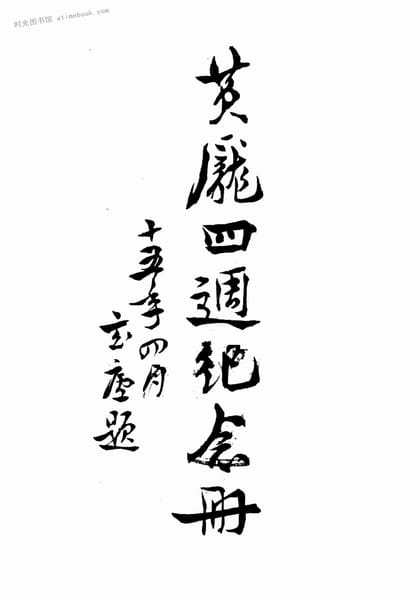 时光图书馆 atimebook.com
黄龐四週纪念册
十五年四月
玄廬题